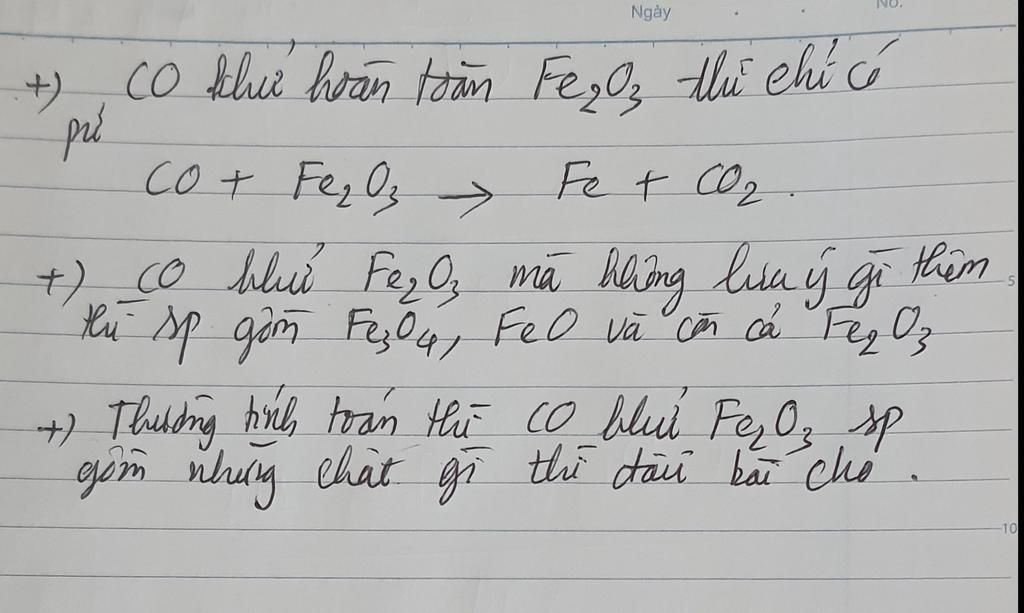 Ngày
No.
+) CO khử hoàn toàn Fe₂O₃ thì chỉ có
pứ
CO + Fe₂O₃ → Fe + CO₂.
+) CO khử Fe₂O₃ mà không lưu ý gì thêm
5
thì sp gồm Fe₃O₄, FeO và còn cả Fe₂O₃
+) Thường tính toán thì CO khử Fe₂O₃ sp
gồm những chất gì thì đầu bài cho.
10